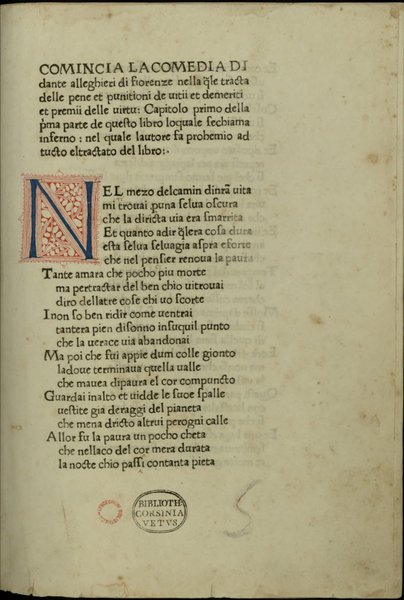 COMINCIA LACOMEDIA DI
dante alleghieri di fiorenze nella q̃le tracta
delle pene et punitioni de uitii et demeriti
et premii delle uirtu: Capitolo primo della
p̃ma parte de questo libro loquale sechiama
inferno: nel quale lautore fa prohemio ad
tucto eltractato del libro:·
NEL mezo delcamin dinr̃a uita
mi trouai ꝑuna selua oscura
che la diricta uia era smarrita
Et quanto adir q̃lera cosa dura
esta selua seluagia aspra eforte
che nel pensier renoua la paura
Tante amara che pocho piu morte
ma pertractar del ben chio uitrouai
diro dellatre cose chi uo scorte
I non so ben ridir come uentrai
tantera pien disonno insuquil punto
che la uerace uia abandonai
Ma poi che fui appie dum colle gionto
ladoue terminaua quella ualle
che mauea dipaura el cor compuncto
Guardai inalto et uidde le suoe spalle
uestite gia deraggi del pianeta
che mena dricto altrui perogni calle
Allor fu la paura un pocho cheta
che nellaco del cor mera durata
la nocte chio passi contanta pieta
BIBLIOTH
CORSINIA
VETVS